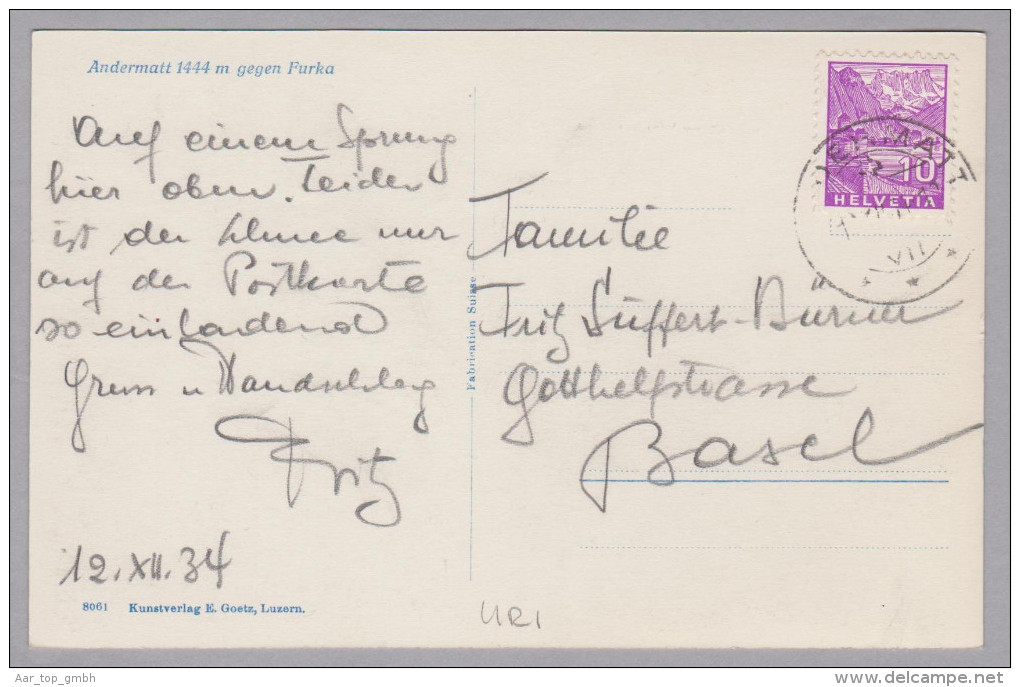 Andermatt 1444 m gegen Furka
Auf einem Sprung
hier oben. Leider
ist der Schnee nur
auf der Postkarte
so einladend
Gruss u Handschlag
Fritz
12.XII.34
8061 Kunstverlag E. Goetz, Luzern.
Fabrication Suisse
10
HELVETIA
Familie
Fritz Süffert-Bürer
Gotthelfstrasse
Basel
URI
Aar_top_gmbh
delcampe.net